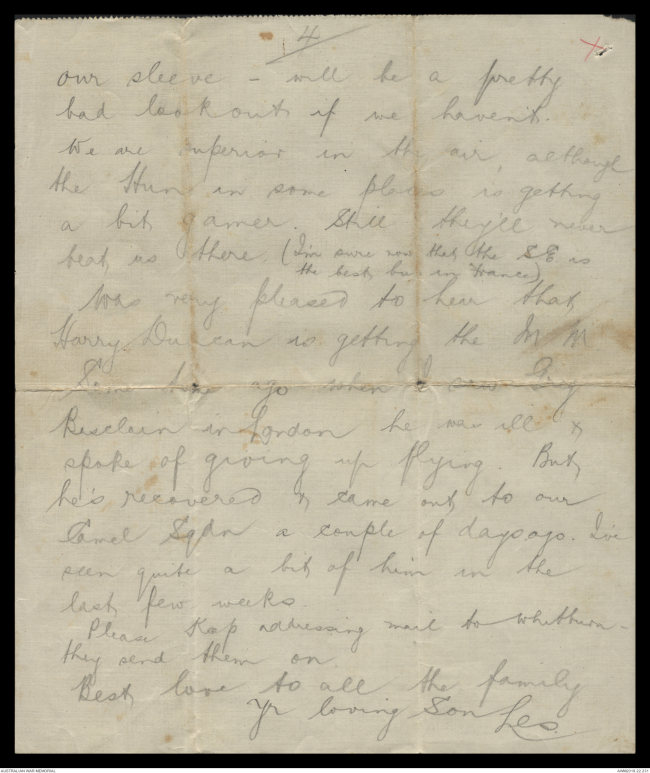 4
our sleeve - will be a pretty
bad lookout if we haven't.
We are superior in the air, although
the Hun in some places is getting
a bit gamer. Still they'll never
beat us there. (I'm sure now that the SE is
the best bus in France)
Was very pleased to hear that
Harry Duncan is getting the M M
Some time ago when I saw
in London he was ill &
spoke of giving up flying. But
he's recovered & came out to our
Camel Sqdn a couple of days ago. I've
seen quite a bit of him in the
last few weeks.
Please Keep addressing mail to Whitburn -
they send them on.
Best love to all the family
Yr loving Son Les.
AUSTRALIAN WAR MEMORIAL